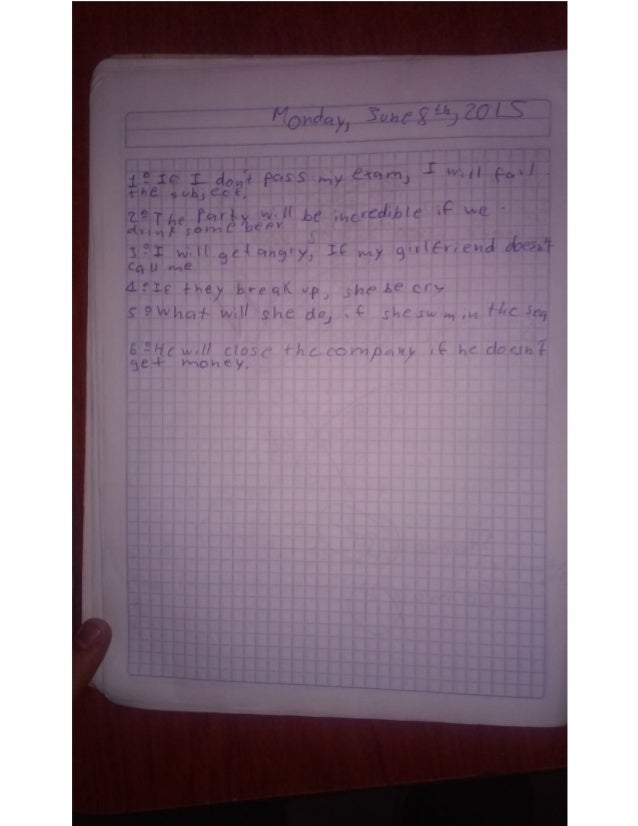 Monday, June 8th, 2015
1º If I don't pass my exam, I will fail
the subject.
2º The Party will be incredible if we
drink some beer
3º I will get angry, If my girlfriend doesn't
call me
4º If they break up, she be cry
5º What will she do, if she swim in the sea
6º He will close the company if he doesn't
get money.